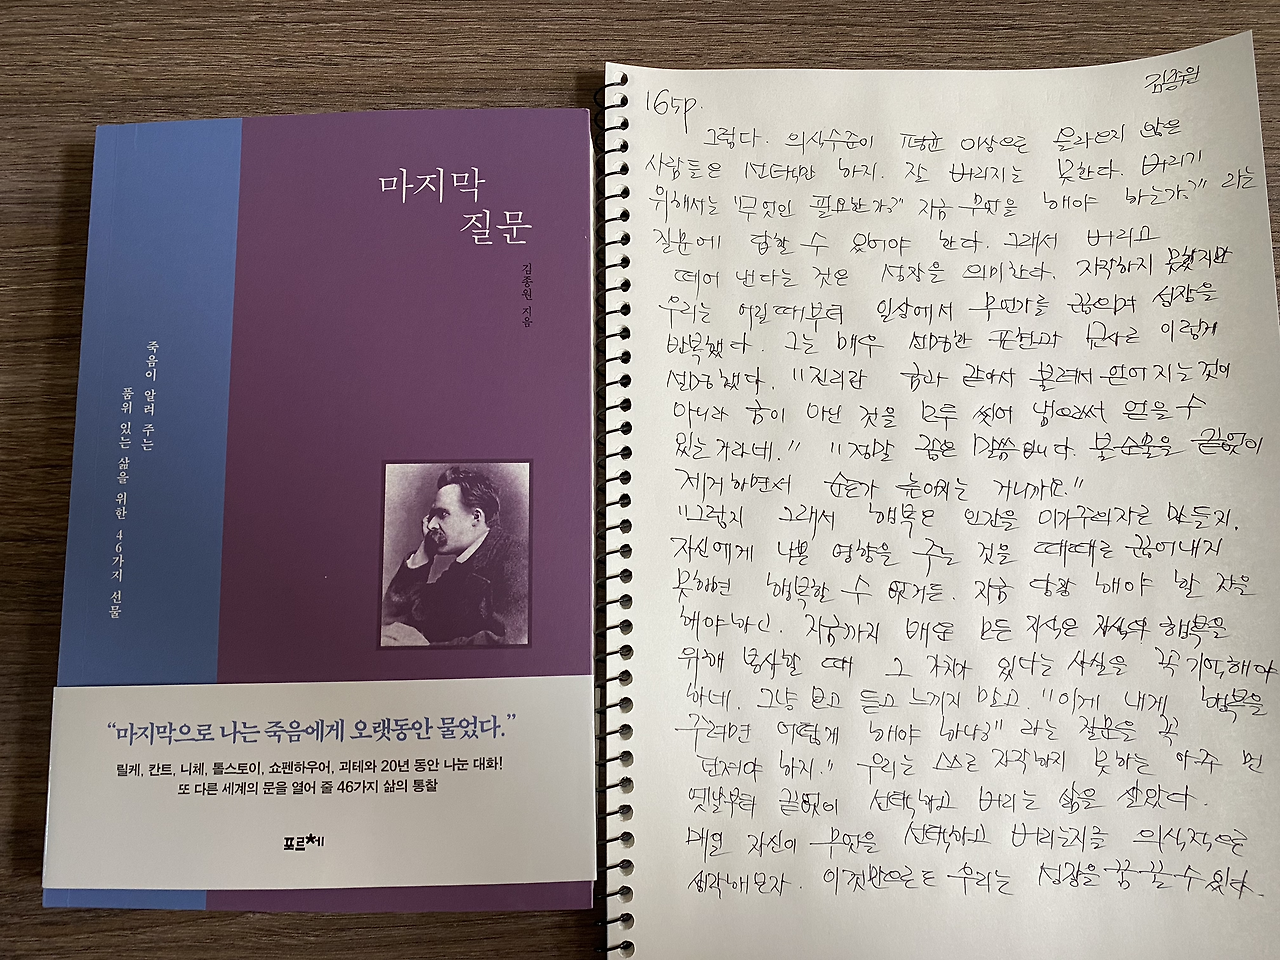 마지막
질문
김종원 지음
죽음이 알려 주는
품위 있는 삶을 위한 46가지 선물
“마지막으로 나는 죽음에게 오랫동안 물었다.”
릴케, 칸트, 니체, 톨스토이, 쇼펜하우어, 괴테와 20년 동안 나눈 대화!
또 다른 세계의 문을 열어 줄 46가지 삶의 통찰
포르*체
김종원
165p.
그렇다. 의식수준이 평균 이상으로 올라오지 않은
사람들은 선택만 하지. 잘 버리지는 못한다. 버리기
위해서는 "무엇인 필요한가?" 지금 무엇을 해야 하는가?" 라는
질문에 답할 수 있어야 한다. 그래서 버리고
떼어 낸다는 것은 성장을 의미한다. 자각하지 못했지만
우리는 어릴때부터 일상에서 무언가를 끊으며 성장을
반복했다. 그는 매우 선명한 표현과 근사로 이렇게
설명했다. "진리란 금과 같아서 불려서 얻어 지는 것이
아니라 금이 아닌 것을 모두 씻어 냄으로써 얻을 수
있는 거라네." "정말 깊은 말씀입니다. 불순물을 끝없이
제거하면서 순도가 높아지는 거니까요."
"그렇지 그래서 행복은 인간을 이기주의자로 만들지.
자신에게 나쁜 영향을 주는 것을 때때로 끊어내지
못하면 행복할 수 없거든. 지금 당장 해야 할 것을
해야하고. 지금까지 배운 모든 지식은 자신의 행복을
위해 봉사할 때 그 가치가 있다는 사실을 꼭 기억해야
하네. 그냥 보고 듣고 느끼지 말고. "이게 내게 행복을
주려면 어떻게 해야 하나?" 라는 질문을 꼭
던져야 하지." 우리는 스스로 자각하지 못하는 아주 먼
옛날부터 끝없이 선택하고 버리는 삶을 살았다.
매일 자신이 무엇을 선택하고 버리는지를 의식적으로
생각해보자. 이것만으로도 우리는 성장을 꿈 꿀 수 있다.